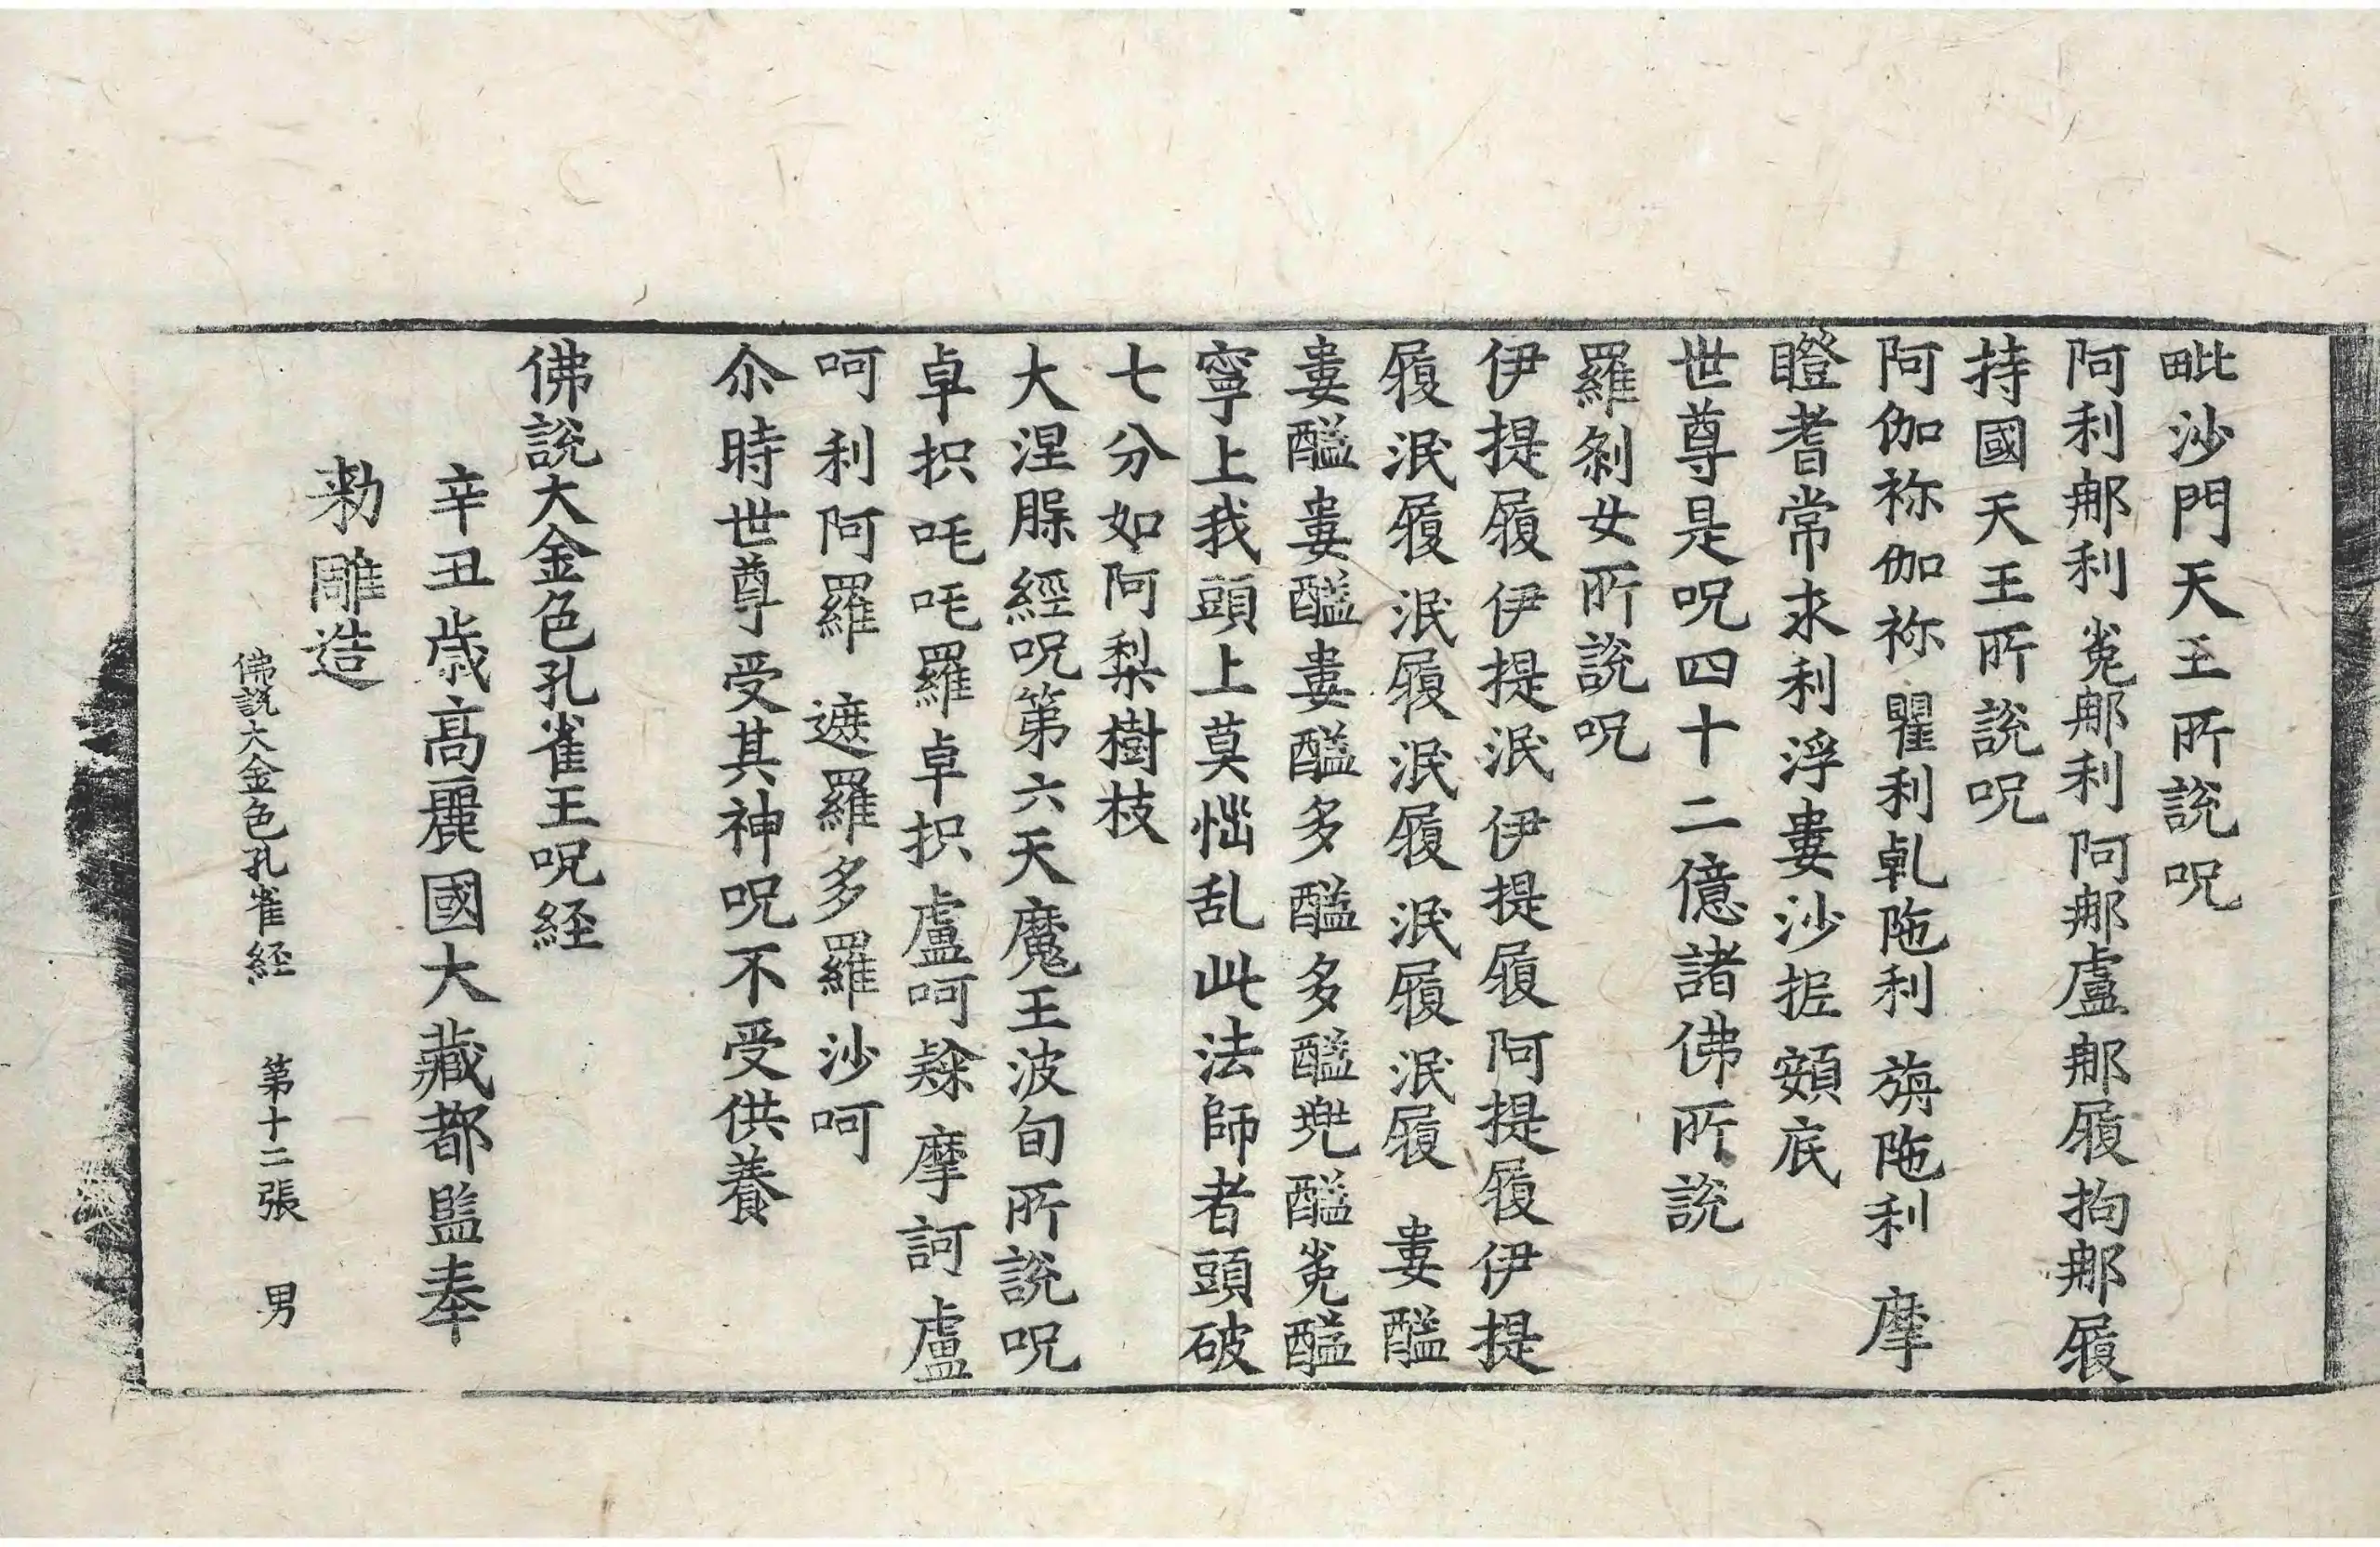 毗沙門天王所說呪
阿利𨚗利㝹𨚗利阿𨚗盧𨚗履拘𨚗履
持國天王所說呪
阿伽袮伽袮瞿利乹陁利旃陁利摩
瞪耆常求利浮婁沙掋頞底
世尊是呪四十二億諸佛所說
羅剎女所說呪
伊提履伊提泯伊提履阿提履伊提
履泯履泯履泯履泯履泯履婁醯
婁醯婁醯婁醯多醯多醯兠醯㝹醯
寧上我頭上莫惱乱此法師者頭破
七分如阿梨樹枝
大涅脲經呪第六天魔王波旬所說呪
卓抧吒吒羅卓抧盧呵㘑摩訶盧
呵利阿羅遮羅多羅沙呵
尒時世尊受其神呪不受供養
佛說大金色孔雀王呪経
辛丑歲高麗國大藏都監奉
勑雕造
佛說大金色孔雀経 第十二張 男